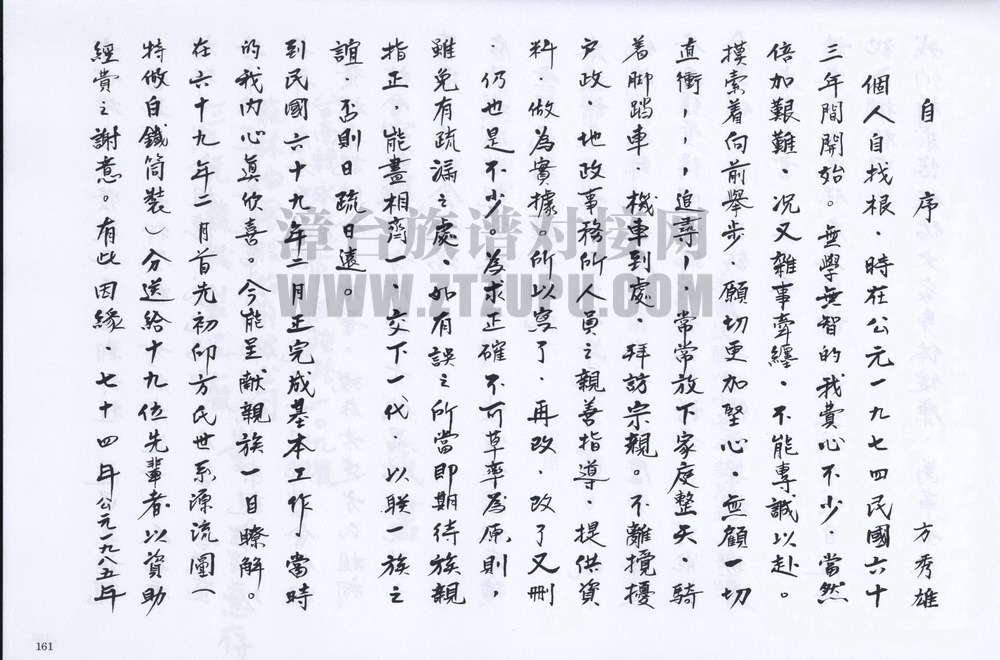 自序　方秀雄
個人自找根．時在公元一九七四民國六十
三年間開始。無學無智的我費心不少．當然
倍加艱難．況又雜事牽纏．不能專誠以赴。
摸索着向前舉步願切更加堅心．無顧一切
直衝，，追尋，．常常放下家庭整天．騎
着脚踏車．機車到處．拜訪宗親。不離攪擾
户政．地政事務所人員之親善指導．提供資
料．做為實據。所以寫了．再改．改了又刪
．仍也是不少。為求正確不可草率為原則，
雖免有疏漏之處、如有誤之所當即期待族親
指正．能盡相齊一、交下一代．以联一族之
誼．否則日疏日遠。
到民國六十九年二月正完成基本工作．當時
的我内心眞欣喜。今能呈献親族一目瞭解。
在六十九年二月首先初仰方氏世系源流圖（
特做白鐵筒裝）分送給十九位先輩者以資助
經費之謝意。有此因緣．七十四年公元一九八五年
161
漳台族谱对接网
WWW.ZTZUPU.COM